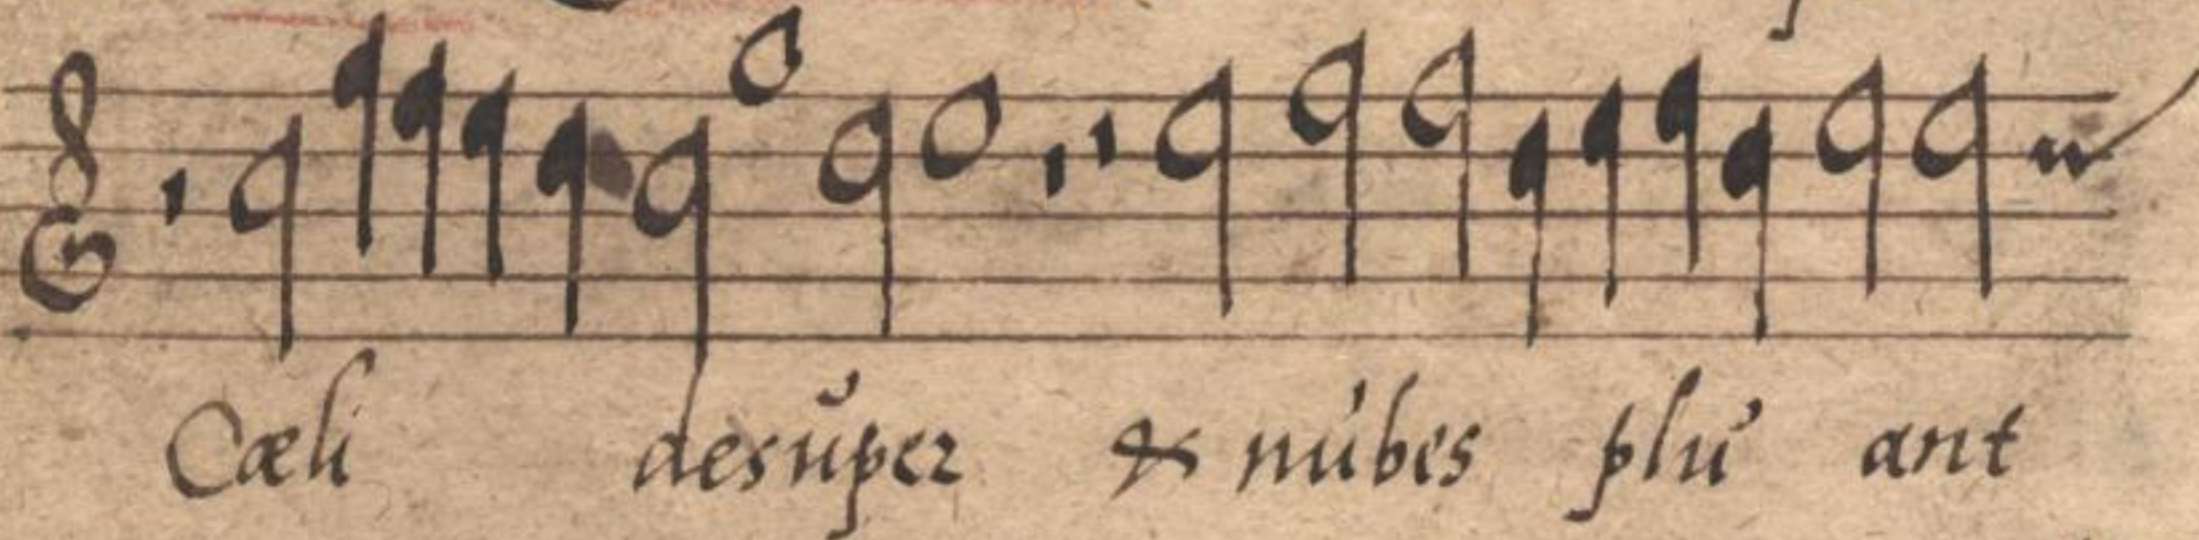 Cæli desŭper & núbes plú ant